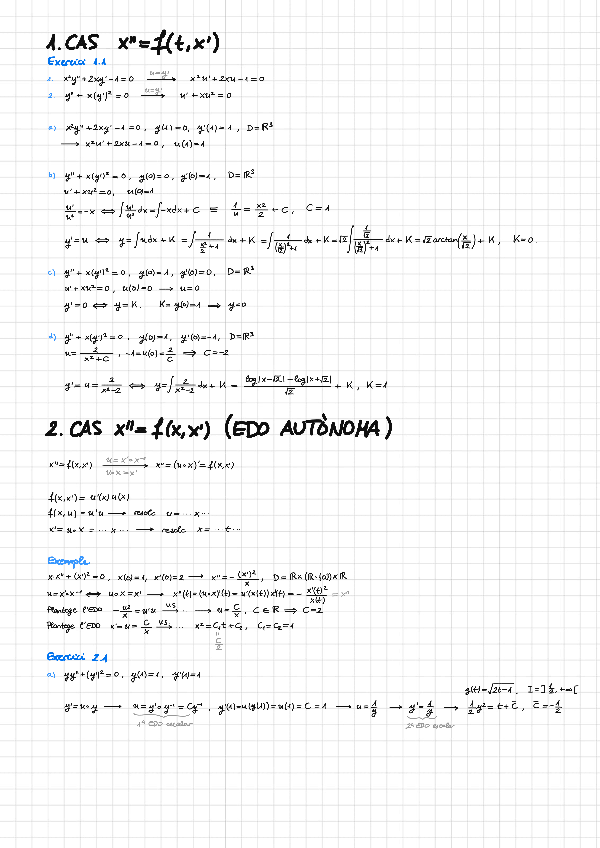 1. CAS x'' = f(t, x')
Exercici 1.1
1. x²y'' + 2xy' - 1 = 0 →(u=y') x²u' + 2xu - 1 = 0
2. y'' + x(y')² = 0 →(u=y') u' + xu² = 0
a) x²y'' + 2xy' - 1 = 0, y(1) = 0, y'(1) = 1, D = ℝ³
→ x²u' + 2xu - 1 = 0, u(1) = 1
b) y'' + x(y')² = 0, y(0) = 0, y'(0) = 1, D = ℝ³
u' + xu² = 0, u(0) = 1
u'/u² = -x ⟺ ∫ u'/u² dx = ∫ -x dx + C ≡ 1/u = x²/2 + C, C = 1
y' = u ⟺ y = ∫ u dx + K = ∫ 1/(x²/2 + 1) dx + K = ∫ 1/((x/√2)² + 1) dx + K = √2 ∫ (1/√2)/((x/√2)² + 1) dx + K = √2 arctan(x/√2) + K, K = 0.
c) y'' + x(y')² = 0, y(0) = 1, y'(0) = 0, D = ℝ³
u' + xu² = 0, u(0) = 0 → u = 0
y' = 0 ⟺ y = K. K = y(0) = 1 ⟹ y = 0
d) y'' + x(y')² = 0, y(0) = 1, y'(0) = -1, D = ℝ³
u = 2/(x² + C), -1 = u(0) = 2/C ⟹ C = -2
y' = u = 2/(x² - 2) ⟺ y = ∫ 2/(x² - 2) dx + K = (log|x - √2| - log|x + √2|)/√2 + K, K = 1
2. CAS x'' = f(x, x') (EDO AUTÒNOMA)
x'' = f(x, x') →(u = x'∘x⁻¹, u∘x = x') x'' = (u∘x)' = f(x, x')
f(x, x') = u'(x) u(x)
f(x, u) = u'u → resolc u = ... x ...
x' = u∘x = ... x ... → resolc x = ·· t ···
Exemple
x x'' + (x')² = 0, x(0) = 1, x'(0) = 2 → x'' = -(x')²/x, D = ℝ×(ℝ\{0})×ℝ
u = x'∘x⁻¹ ⟷ u∘x = x' → x''(t) = (u∘x)'(t) = u'(x(t)) x'(t) = -x'(t)²/x(t) = x''
Plantege l'EDO -u²/x = u'u →(v.s.) ·· → u = C/x, C ∈ ℝ ⟹ C = 2
Plantege l'EDO x' = u = C/x →(v.s.) ... x² = C₁t + C₂, C₁ = C₂ = 1
"
C/2
Exercici 2.1
a) yy'' + (y')² = 0, y(1) = 1, y'(1) = 1
y(t) = √(2t - 1), I = ]1/2, +∞[
y' = u∘y → u = y'∘y⁻¹ = Cy⁻¹, y'(1) = u(y(1)) = u(1) = C = 1 → u = 1/y → y' = 1/y → 1/2 y² = t + C̄, C̄ = -1/2
1ª EDO escalar 2ª EDO escalar